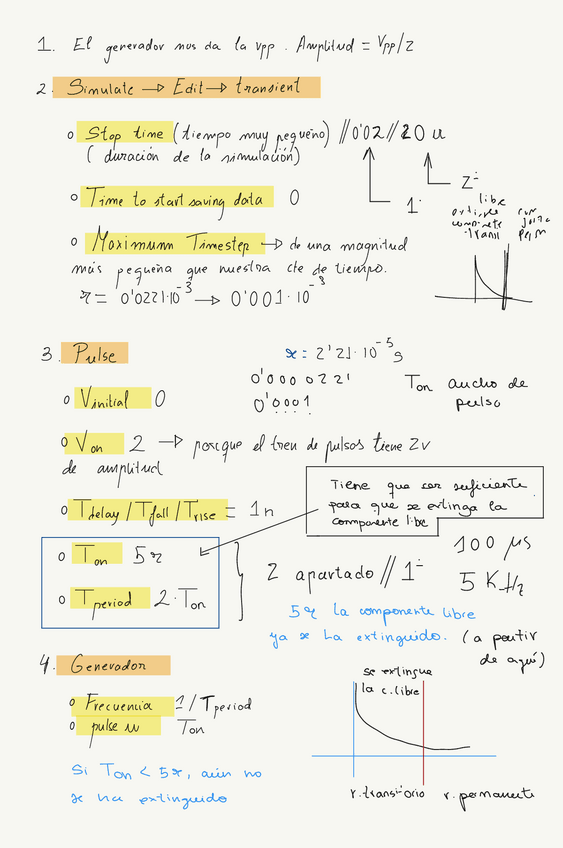 1. El generador nos da la Vpp. Amplitud = Vpp/2
2. Simulate → Edit → transient
Stop time (tiempo muy pequeño) // 0'02 // 20 u
(duración de la simulación)
1:
2:
Time to start saving data 0
libre
Maximum Timestep → de una magnitud
más pequeña que nuestra cte de tiempo.
τ = 0'0221·10⁻³ → 0'001·10⁻³
3. Pulse
τ = 2'21·10⁻⁵ s
0'0000221
0'0001
Ton ancho de
pulso
Vinitial 0
Von 2 → porque el tren de pulsos tiene 2V
de amplitud
Tiene que ser suficiente
para que se extinga la
componente libre
Tdelay / Tfall / Trise = 1n
Ton 5τ
Tperiod 2·Ton
2 apartado // 1:
100 µs
5 KHz
5τ la componente libre
ya se ha extinguido. (a partir
de aquí)
4. Generador
Frecuencia 1/Tperiod
pulse w Ton
Si Ton < 5τ, aún no
se ha extinguido
se extingue
la c. libre
r. transitorio r. permanente